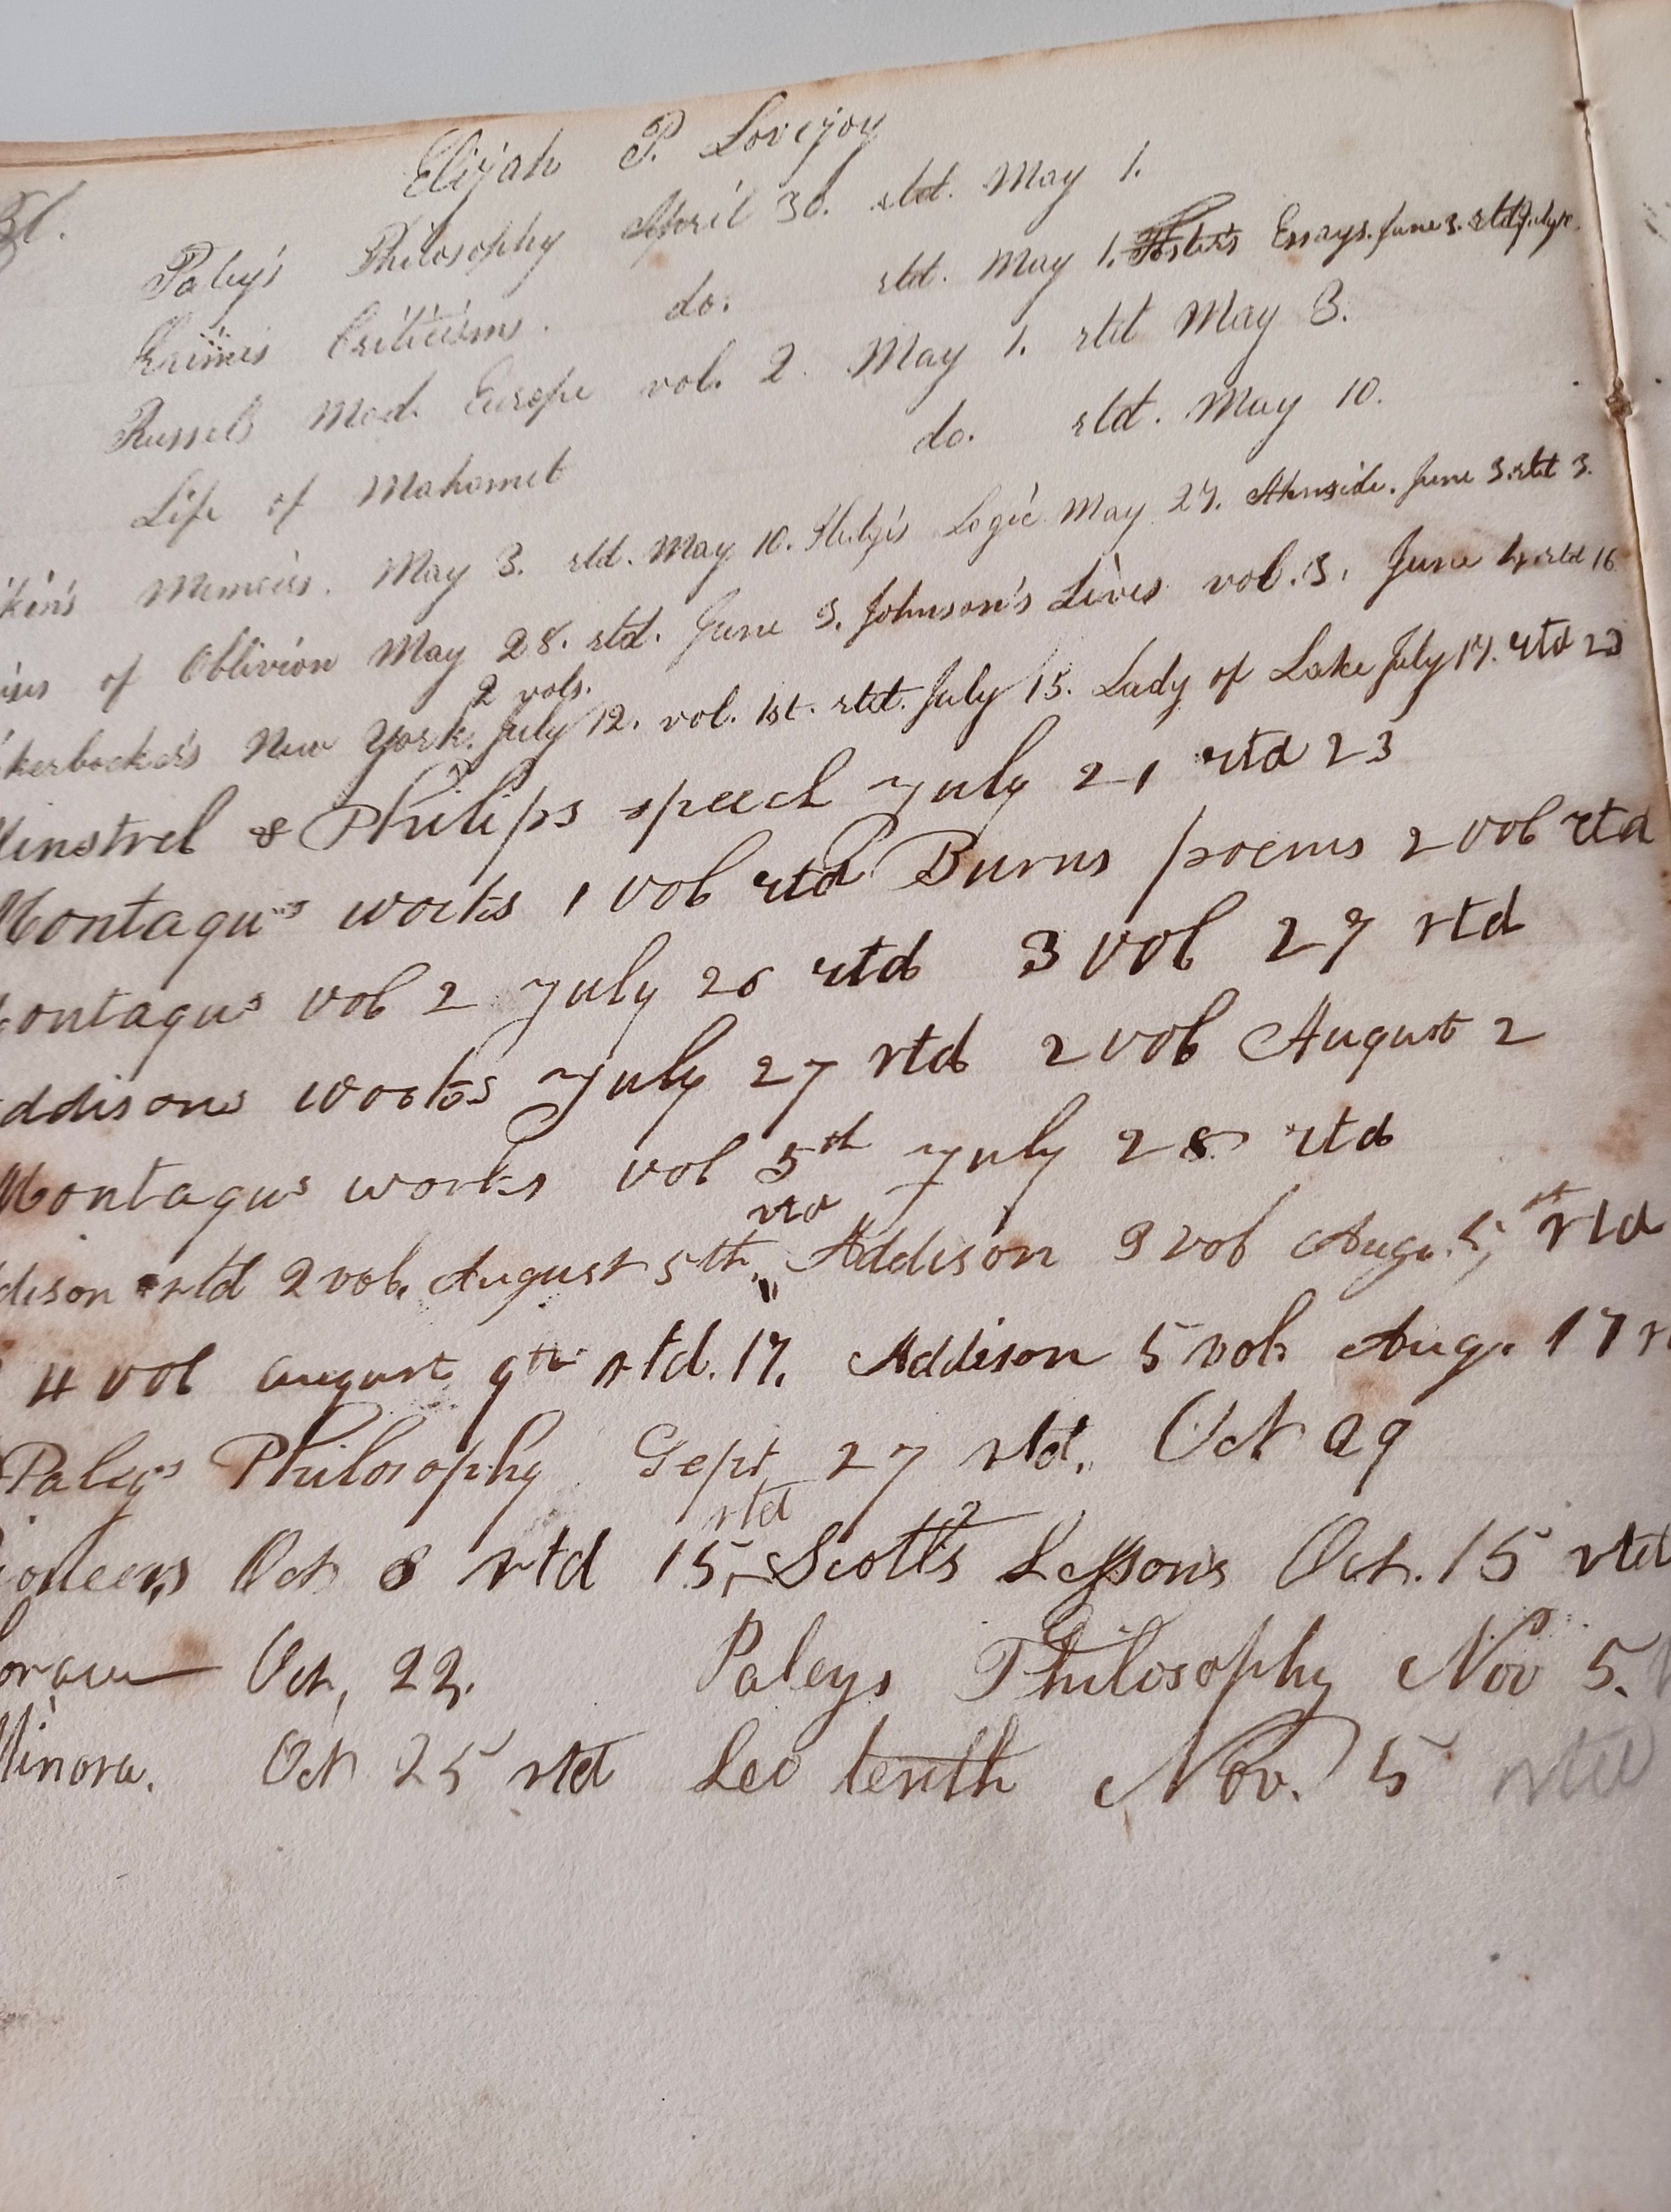 Elijah P. Lovejoy
Paley's Philosophy April 30. rtd. May 1.
Kaimes Criticisms. do. rtd. May 1. Foster's Essays. June 3. rtd July
Russels Mod. Europe vol. 2. May 1. rtd May 3.
Life of Mahomet do. rtd. May 10.
Memoirs. May 3. rtd. May 10. Logic May 27. Akenside. June 3. rtd 3.
of Oblivion May 28. rtd. June 3. Johnson's Lives vol. 3. June 4 rtd 16
2 vols.
kerbocker's New York. July 12. vol. 1st. rtd. July 15. Lady of Lake July 17. rtd 23
Minstrel & Philips speech July 21 rtd 23
Montagus works 1 vol rtd Burns poems 2 vol rtd
ontagus vol 2 July 26 rtd 3 vol 27 rtd
ddisons works July 27 rtd 2 vol August 2
Montagus works vol 5th July 28 rtd
rtd
dison rtd 2 vol. August 5th. Addison 3 vol Aug. 5th rtd
4 vol august 9th rtd. 17. Addison 5 vol Aug. 17 r
Paleys Philosophy Sept 27 rtd. Oct 29
rtd
ioneers Oct 8 rtd 15, Scott's Lessons Oct. 15 rtd
Oct, 22. Paleys Philosophy Nov 5.
Minora. Oct 25 rtd Leo tenth Nov. 5 rtd